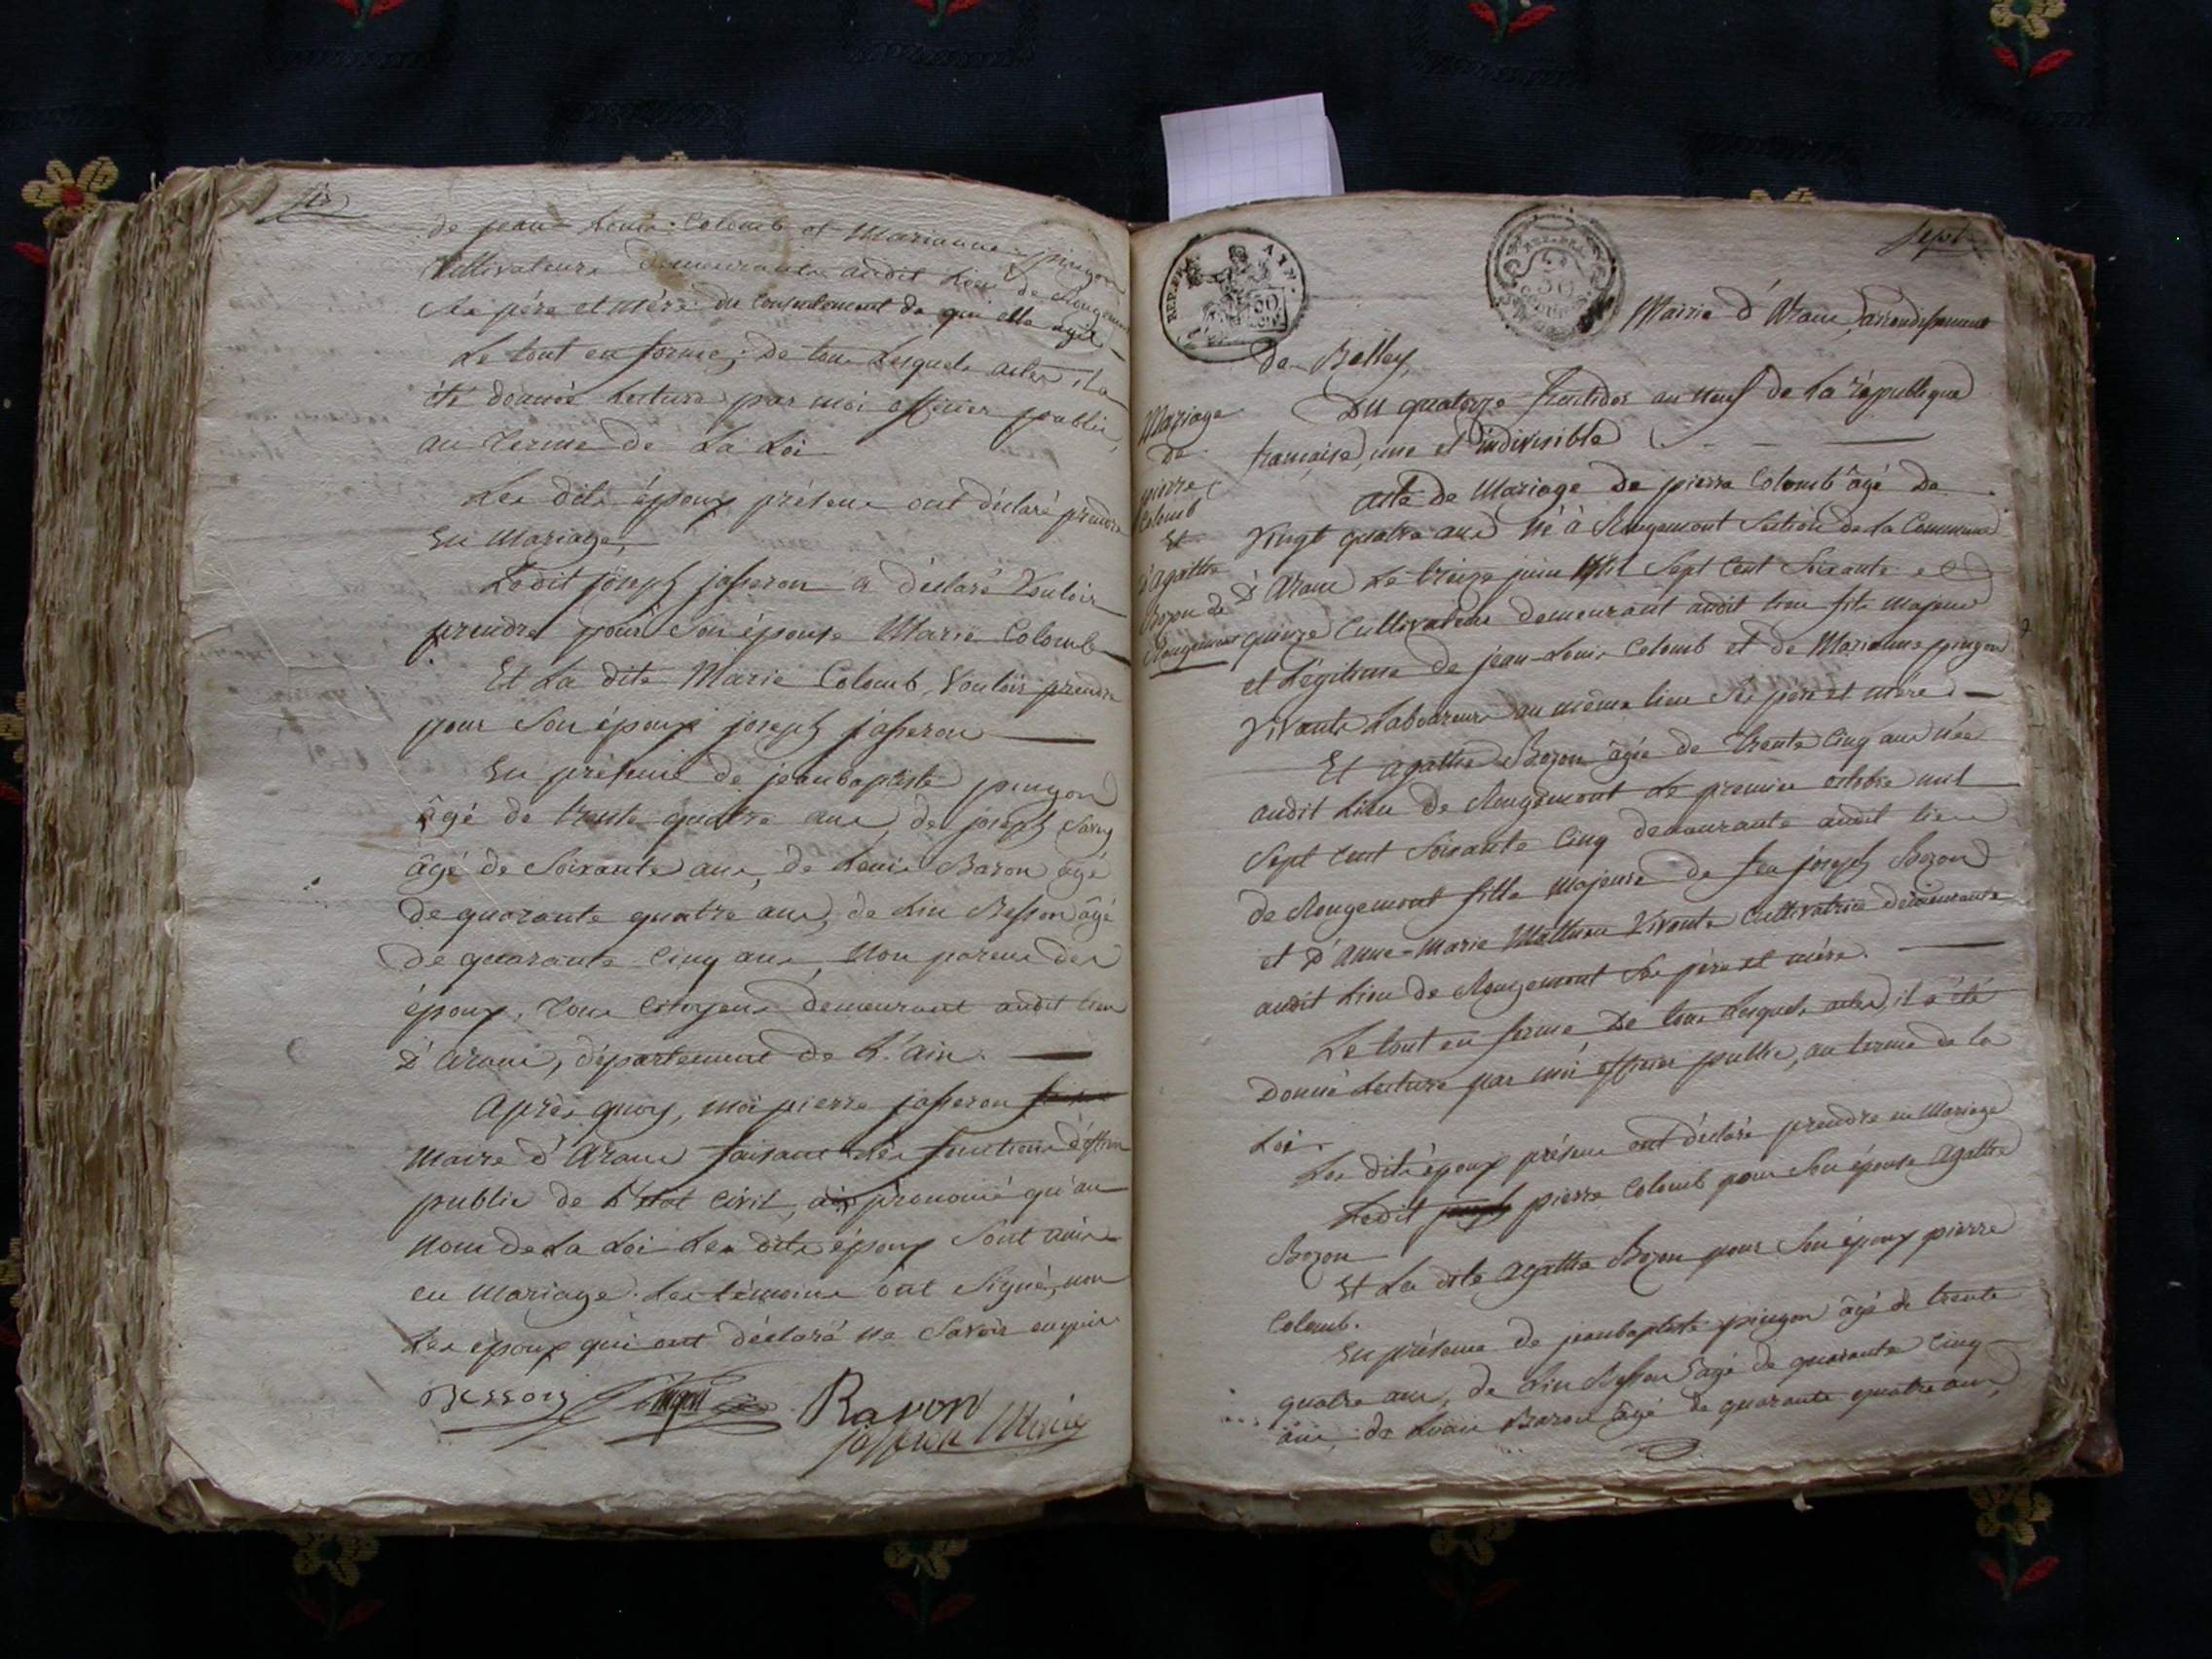 six
de jean Louis Colomb et Marianne pinyon
Cultivateurs demeurants audit Lieu de Rougemont
Ses père et mère du Consentement de qui elle agit
Le tout en forme, de tous Lesquels actes il a
été donnée Lecture par moi officier public,
au terme de La Loi
Les dits époux présens ont déclaré prendre
En Mariage,
Ledit joseph josseron a déclaré Vouloir
prendre pour Son épouse Marie Colomb
Et La dite Marie Colomb, Vouloir prendre
pour Son époux joseph josseron
En présence de jeanbaptiste pingon
âgé de trente quatre ans, de joseph Savey
âgé de Soixante ans, de Louis Baron âgé
de quarante quatre ans, de Lin Besson âgé
de quarante Cinq ans, Non parens des
époux, tous Citoyens demeurant audit lieu
D'Aranc, département de L'Ain.
Après quoy, moi pierre josseron
maire d'Aranc faisant les fonctions d'officier
public de L'état Civil, ai prononcé qu'au
Nom de La Loi Les dits époux Sont unis
en Mariage. Les témoins ont Signé, non
Les époux qui ont déclaré ne Savoir enquis
Besson pingon Baron
josseron Maire
REP. FRA. AIN.
50
CENT.
REP. FRA.
50
sept
Mairie d'Aranc, arrondissement
de Belley,
Du quatorze fructidor an neuf de La république
française, une et indivisible
Mariage
De
pierre
Colomb
Et
D'agathe
Bozon de
Rougemont
acte de Mariage de pierre Colomb âgé De
Vingt quatre ans Né à Rougemont Section de la Commune
D'Aranc Le treize juin Mil Sept Cent Soixante et
quinze Cultivateur demeurant audit lieu fils majeur
et Légitime de jean-Louis Colomb et de Marianne pingon
Vivants Laboureurs au même lieu Ses père et mère
Et agathe Bozon âgée de trente Cinq ans née
audit Lieu de Rougemont Le premier octobre mil
Sept Cent Soixante Cinq demeurante audit lieu
de Rougemont fille Majeure de feu joseph Bozon
et D'Anne-Marie Mathieu Vivante Cultivatrice demeurante
audit Lieu de Rougemont Ses père et mère.
Le tout en forme De tous Lesquels actes, il a été
Donné Lecture par moi officier public, au terme de la
Loi.
Les dits époux présens ont déclaré prendre en Mariage
Ledit joseph pierre Colomb pour Son épouse Agathe
Bozon
Et La dite Agathe Bozon pour Son époux pierre
Colomb.
En présence de jeanbaptiste pingon âgé de trente
quatre ans, de Lin Besson âgé de quarante Cinq
ans, de Louis Baron âgé de quarante quatre ans,